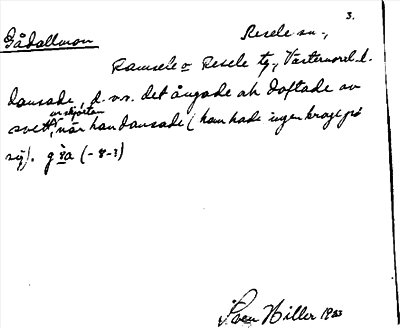 3.
Gådallmon
Resele sn.,
Ramsele o Resele tg., Västernorrl. l.
dansade, d.v.s. det ångade ah doftade av
ur skjortan
svett, när han dansade (han hade ingen krage på
sig). g
Hiller 1933